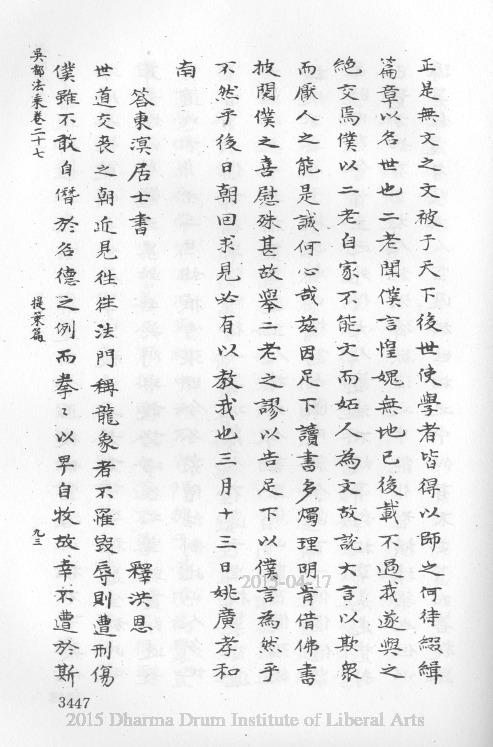 正是無文之文被于天下後世使學者皆得以師之何待綴緝
篇章以名世也二老聞僕言惶媿無地已後載不過我遂與之
絶交焉僕以二老自家不能文而妬人為文故説大言以欺衆
而厭人之能是誠何心哉兹因足下讀書多燭理明肯借佛書
披閱僕之喜慰殊甚故舉二老之謬以告足下以僕言為然乎
不然乎後日朝回求見必有以教我也三月十三日姚廣孝和
南
答東溟居士書 釋洪恩
世道交丧之朝近見徃徃法門稱龍象者不罹毀辱則遭刑傷
僕雖不敢自僭於名德之例而拳〻以早自牧故幸不遭於斯
吴都法乘卷二十七 提乘篇 九三
3447
2015-04-17
2015 Dharma Drum Institute of Liberal Arts